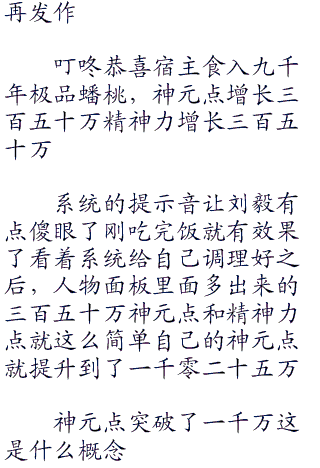 再发作
叮咚恭喜宿主食入九千
年极品蟠桃，神元点增长三
百五十万精神力增长三百五
十万
系统的提示音让刘毅有
点傻眼了刚吃完饭就有效果
了看着系统给自己调理好之
后，人物面板里面多出来的
三百五十万神元点和精神力
点就这么简单自己的神元点
就提升到了一千零二十五万
神元点突破了一千万这
是什么概念